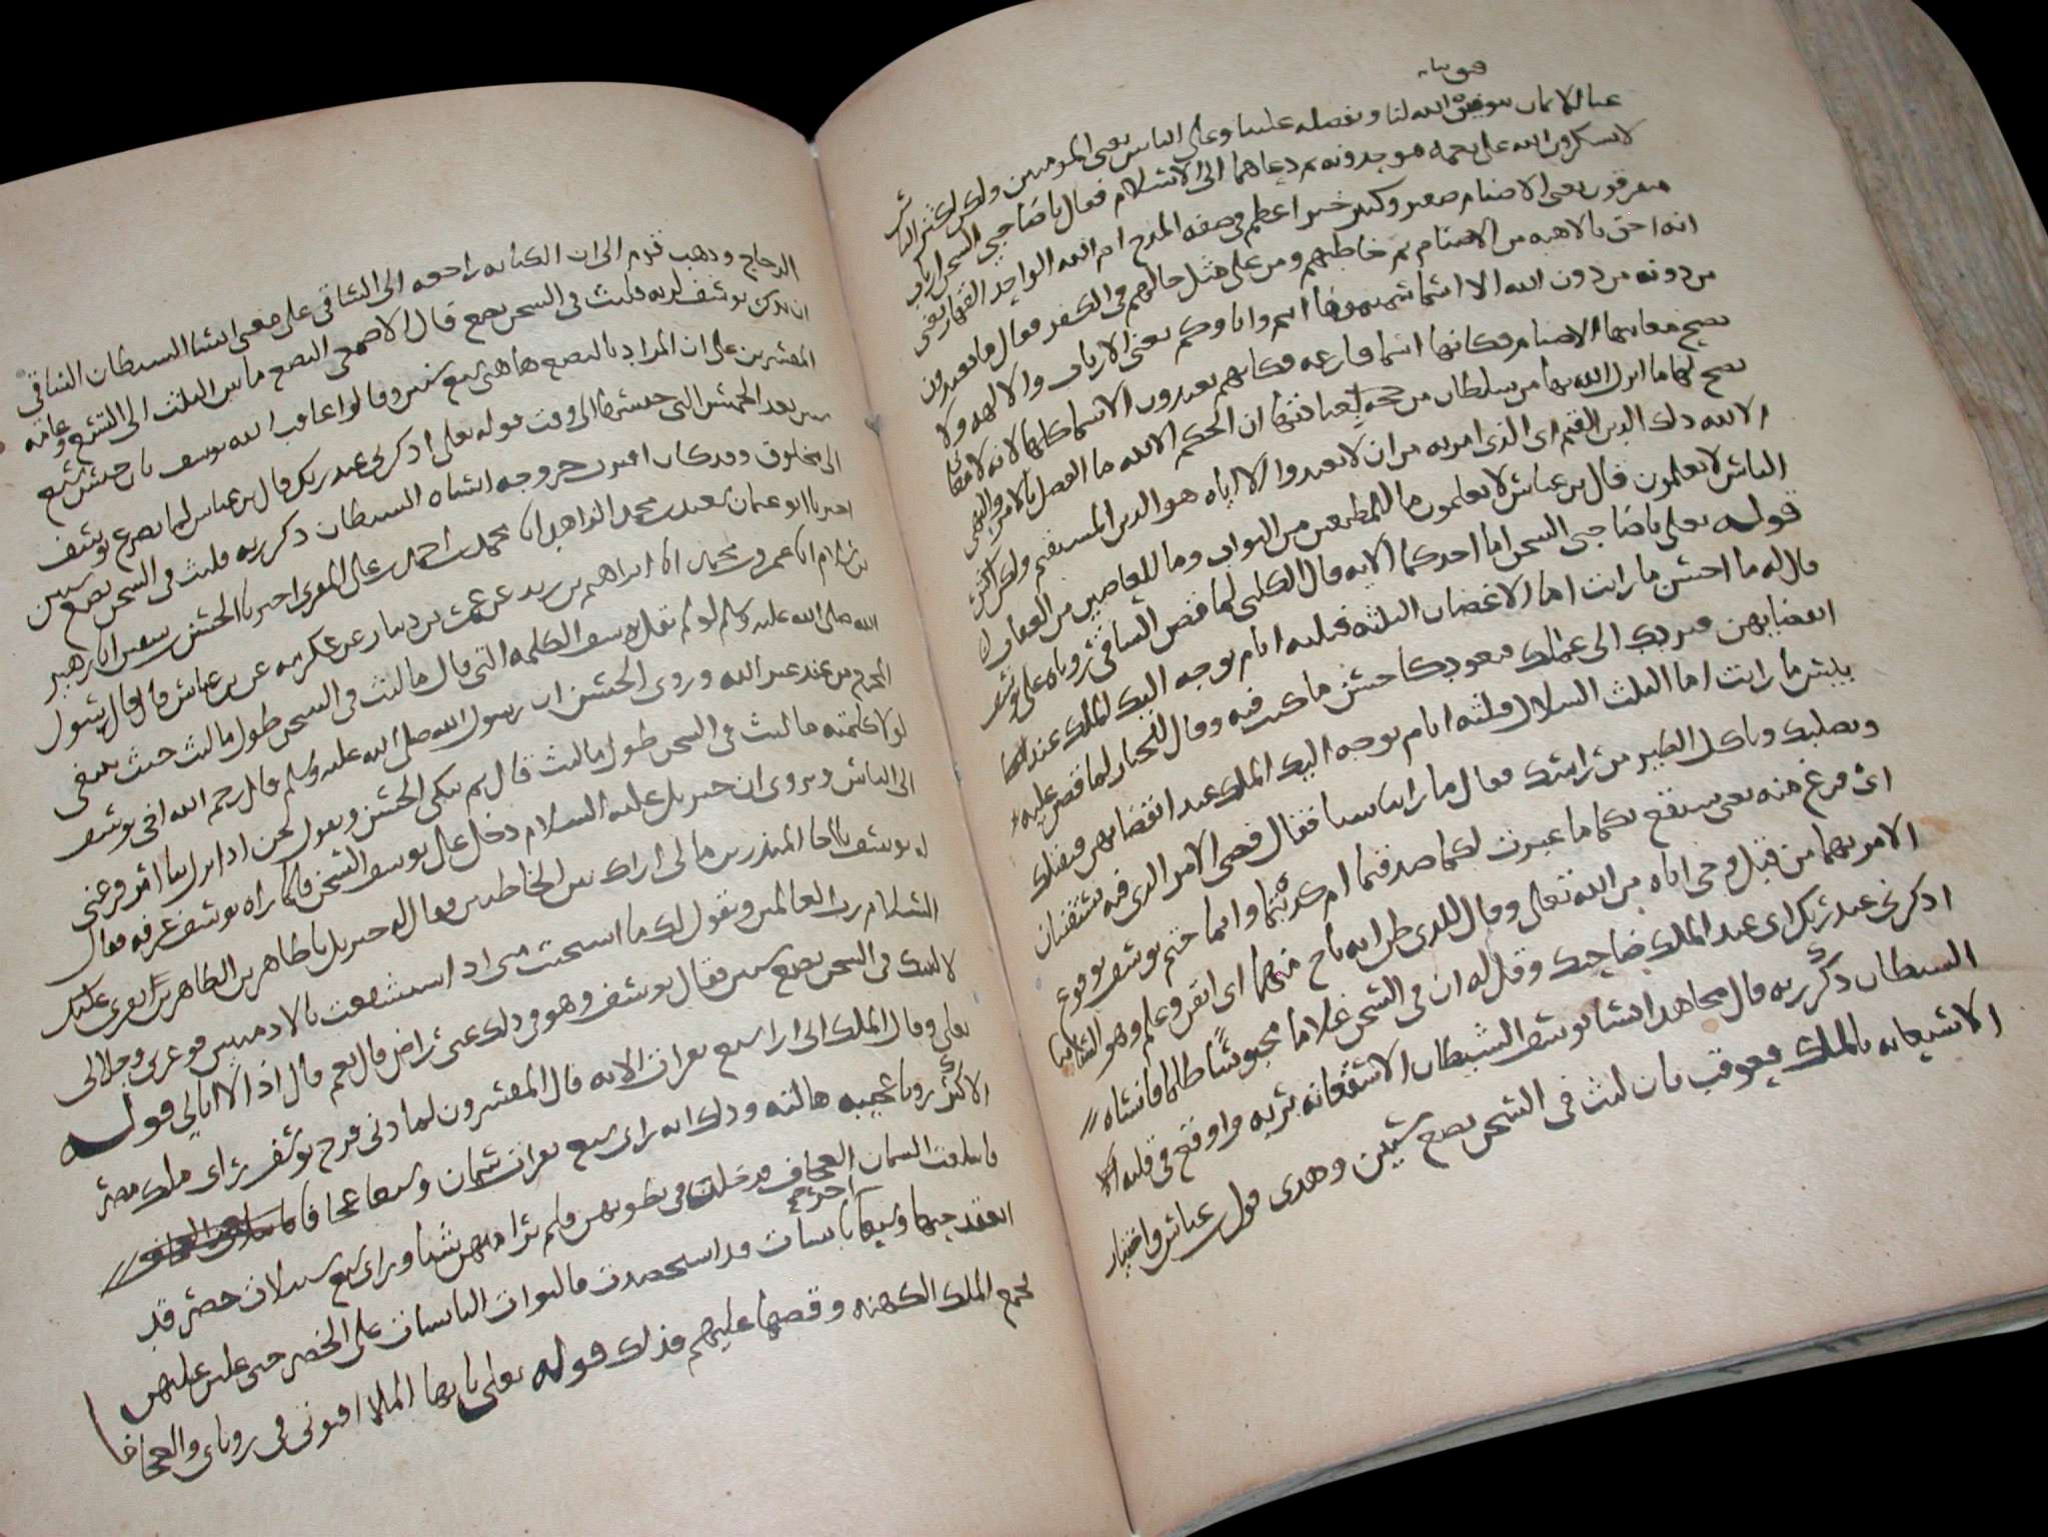 الايمان بتوفيق الله لنا وبفضله علينا وعلى الناس يعني المومنين ولكن اكثر الناس
لا يشكرون الله على نعمه فيوحدونه ثم دعاهما الى الاسلام فقال يا صاحبي السجن ارباب
متفرقون يعني الاصنام صغير وكبير خير اعظم في صفه المدح ام الله الواحد القهار يعني
انه احق بالالهيه من الاصنام ثم خاطبهم ومن على مثل حالهم في الكفر فقال ما تعبدون
من دونه من دون الله الا اسما سميتموها انتم واباوكم يعني الارباب والالهه ولا
يصح معانيها الاصنام فكانها اسما فارغه فكانهم يعبدون الاسما كلها لانه لا معاني
تصح لها ما انزل الله بها من سلطان من حجه لعبادتها ان الحكم الا لله ما الفصل بالامر والنهي
الا لله ذلك الدين القيم اي الذي امر به من ان لا تعبدوا الا اياه هو الدين المستقيم ولكن اكثر
الناس لا يعلمون قال بن عباس لا يعلمون ما للمطيعين من الثواب وما للعاصين من العقاب
قوله تعالى يا صاحبي السجن اما احدكما الايه قال الكلبي لما قص الساقي روياه على يوسف
قال له ما احسن ما رايت اما الاغصان الثلثه فثلثه ايام يوجه اليك الملك عند
انقضايهن فيردك الى عملك فتعود كاحسن ما كنت فيه وقال للخباز لما قص عليه
بيس ما رايت اما الثلث السلال فثلثه ايام يوجه اليك الملك عند انقضايهن فيقتلك
ويصلبك وياكل الطير من راسك فقال ما راينا شيا فقال قضي الامر الذي فيه تستفتيان
اي فرغ منه يعني سيقع بكما ما عبرت لكما صدقتما ام كذبتما وانما حتم يوسف بوقوع
الامر بهما من قبل وحي اتاه من الله تعالى وقال للذي ظن انه ناج منهما اي ايقن وعلم وهو الساقي
اذكرني عند ربك اي عند الملك صاحبك وقل له ان في السجن غلاما محبوسا ظلما فانساه
الشيطان ذكر ربه قال مجاهد انسا يوسف الشيطان الاستغاثه بربه واوقع في قلبه
الاستغاثه بالملك فعوقب بان لبث في السجن بضع سنين وهذى قول بن عباس واختيار
الزجاج وذهب قوم الى ان الكنايه راجعه الى الساقي على معنى انسا الشيطان الساقي
ان يذكر يوسف لربه فلبث في السجن بضع قال الاصمعي البضع ما بين الثلث الى التسع وعامه
المفسرين على ان المراد بالبضع هاهنا سبع سنين وقالوا عاقب الله يوسف بان حبس سبع
سنين بعد الخمس التي حبسها الى وقت قوله تعالى اذكرني عند ربك قال بن عباس لما تضرع يوسف
الى مخلوق وقد كان اقترب خروجه انساه الشيطان ذكر ربه فلبث في السجن بضع سنين
اخبرنا ابو عثمان سعيد بن محمد الزاهد انا محمد بن احمد بن علي المقري اخبرنا الحسن بن سفين
انا عمرو بن محمد انا ابراهيم بن يزيد عن عمرو بن دينار عن عكرمه عن بن عباس قال قال رسول
الله صلى الله عليه وسلم لو لم يقل يوسف الكلمه التي قال ما لبث في السجن طول ما لبث حيث يبتغي
الفرج من عند غير الله وروى الحسن ان رسول الله صلى الله عليه وسلم قال رحم الله اخي يوسف
لولا كلمته ما لبث في السجن طول ما لبث قال ثم يبكي الحسن ويقول نحن اذا نزل بنا امر فزعنا
الى الناس ويروى ان جبريل عليه السلام دخل على يوسف السجن فلما راه يوسف عرفه فقال
له يوسف يا اخا المنذرين ما لي اراك بين الخاطين فقال له جبريل يا طاهر بن الطاهرين يقري عليك
السلام رب العالمين ويقول لك ما استحيت مني اذ استشفعت بالادميين فوعزتي وجلالي
لالبثنك في السجن بضع سنين فقال يوسف وهو في ذلك عني راض قال نعم قال اذا لا ابالي قوله
تعالى وقال الملك اني ارى سبع بقرات الايه قال المفسرون لما دنى فرج يوسف راى ملك مصر
الاكبر رويا عجيبه هالته وذلك انه راى سبع بقرات سمان وسبعا عجافا
فابتلعت العجاف السمان فدخلن في بطونهن فلم ير منهن شيا وراى سبع سنبلات خضر قد
انعقد حبها وسبعا اخر يابسات قد استحصدت فالتوت اليابسات على الخضر حتى غلبن عليهن
فجمع الملك الكهنه وقصها عليهم فذلك قوله تعالى يا ايها الملا افتوني في روياي والعجاف